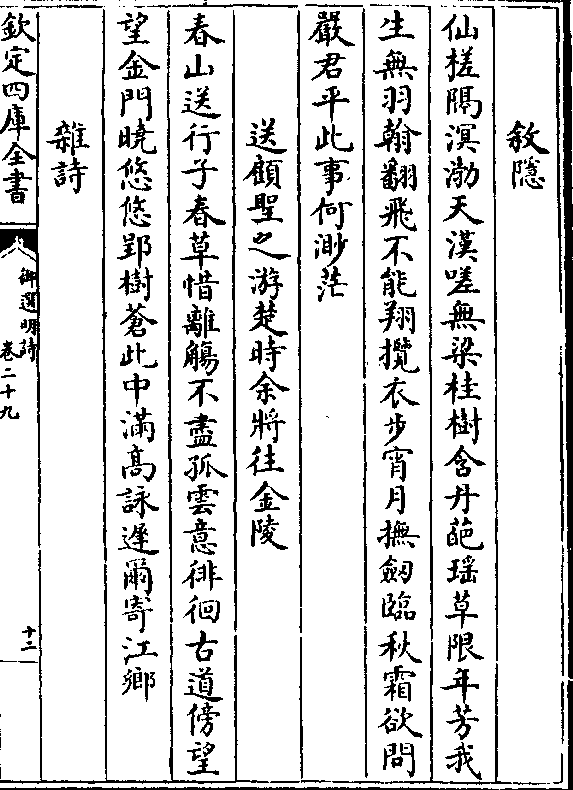 敘隱
仙槎隔溟渤天漢嗟無梁桂樹含丹葩瑶草限年芳我
生無羽翰翻飛不能翔攬衣步宵月撫劔臨秋霜欲問
嚴君平此事何渺茫
送顧聖之游楚時余將往金陵
春山送行子春草惜離觴不盡孤雲意徘徊古道傍望
望金門曉悠悠郢樹蒼此中滿高詠遲爾寄江鄉
雜詩
欽定四庫全書
御選明詩
卷二十九
十二